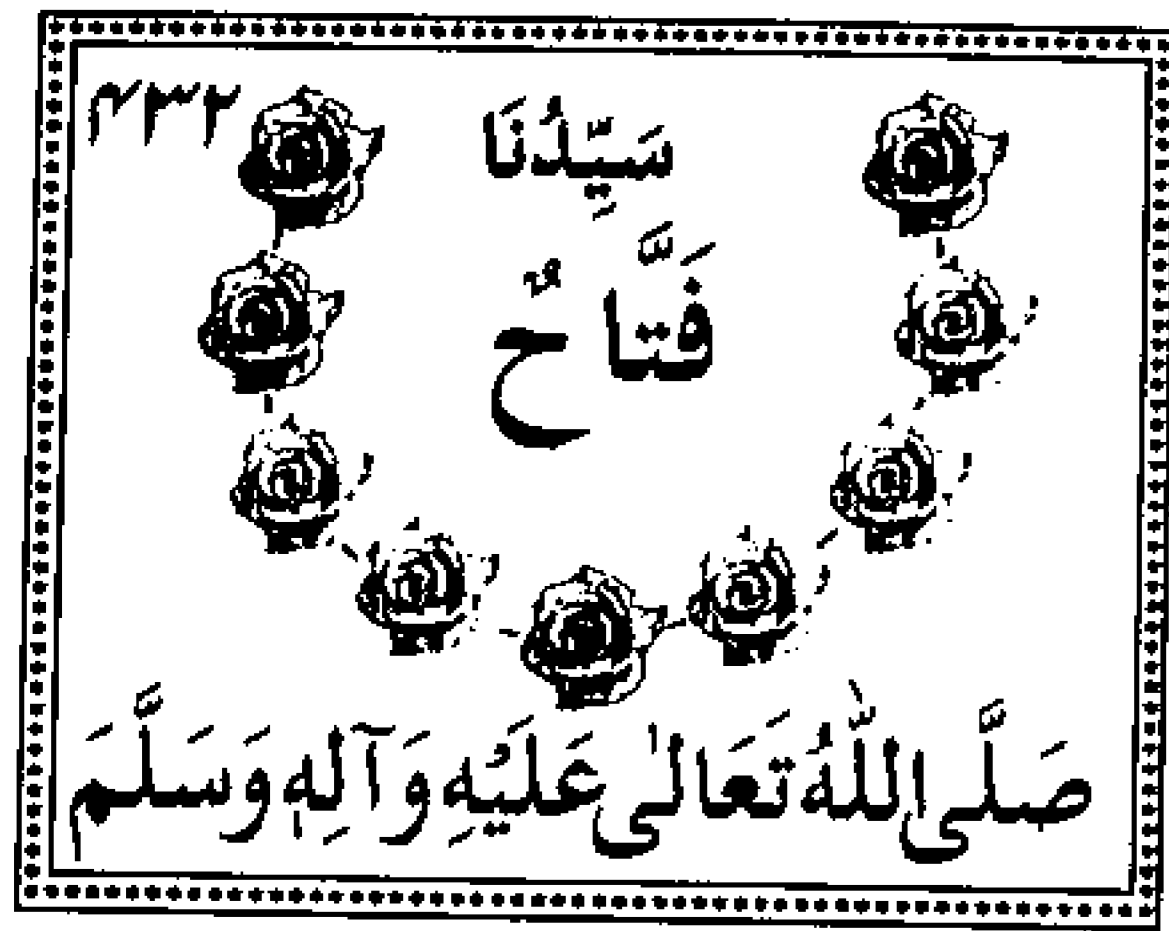 ۴۳۲
سَيِّدُنَا
فَتَّاحٌ
صَلَّى اللّٰهُ تَعَالٰى عَلَيْهِ وَآلِهٖ وَسَلَّمَ